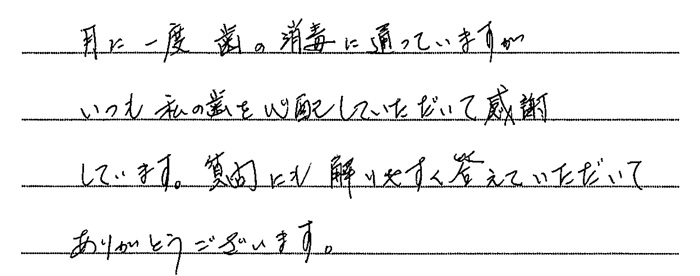 月に一度 歯の消毒に通っていますが
いつも 私の歯を心配していただいて感謝
しています。質問にも 解りやすく答えていただいて
ありがとうございます。